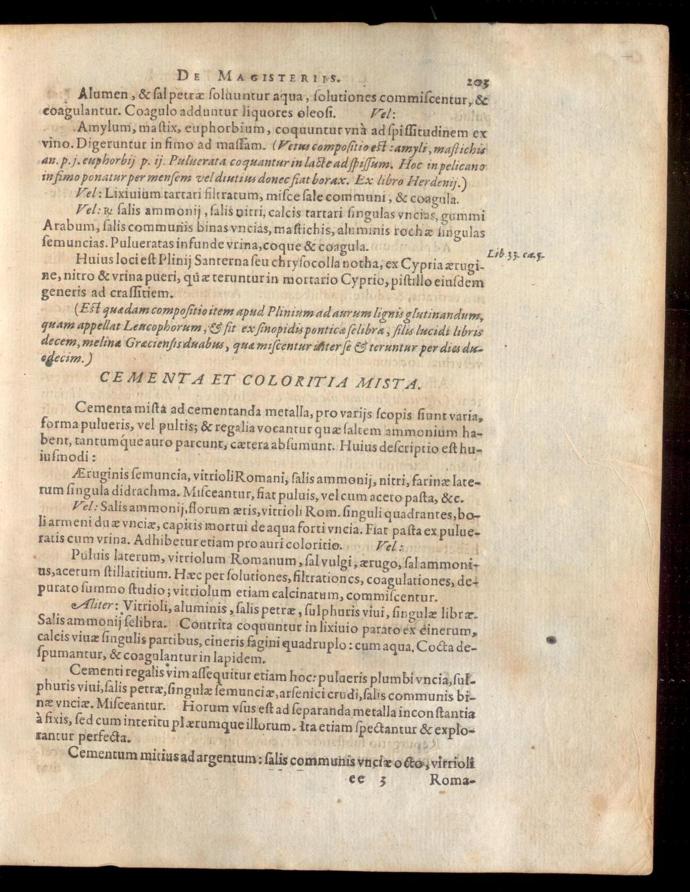 DE MAGISTERIIS. 203
Alumen, & sal petræ soluuntur aqua, solutiones commiscentur, &
coagulantur. Coagulo adduntur liquores oleosi. Vel:
Amylum, mastix, euphorbium, coquuntur vnà ad spissitudinem ex
vino. Digeruntur in fimo ad massam. (Vetus compositio est: amyli, mastichis
an. p. j. euphorbij p. ij. Puluerata coquantur in lacte ad spissum. Hoc in pelicano
in fimo ponatur per mensem vel diutius donec fiat borax. Ex libro Herdenij.)
Vel: Lixiuium tartari filtratum, misce sale communi, & coagula.
Vel: ℞ salis ammonij, salis nitri, calcis tartari singulas vncias, gummi
Arabum, salis communis binas vncias, mastichis, aluminis rochæ singulas
semuncias. Pulueratas infunde vrina, coque & coagula.
Lib. 33. ca. 5.
Huius loci est Plinij Santerna seu chrysocolla notha, ex Cypria ærugi-
ne, nitro & vrina pueri, quæ teruntur in mortario Cyprio, pistillo eiusdem
generis ad crassitiem.
(Est quædam compositio item apud Plinium ad aurum lignis glutinandum,
quam appellat Leucophorum, & fit ex sinopidis ponticæ selibra, silis lucidi libris
decem, melinæ Græciensis duabus, quæ miscentur inter se & teruntur per dies du-
odecim.)
CEMENTA ET COLORITIA MISTA.
Cementa mista ad cementanda metalla, pro varijs scopis fiunt varia,
forma pulueris, vel pultis; & regalia vocantur quæ saltem ammonium ha-
bent, tantumque auro parcunt, cætera absumunt. Huius descriptio est hu-
iusmodi:
Æruginis semuncia, vitrioli Romani, salis ammonij, nitri, farinæ late-
rum singula didrachma. Misceantur, fiat puluis, vel cum aceto pasta, &c.
Vel: Salis ammonij, florum æris, vitrioli Rom. singuli quadrantes, bo-
li armeni duæ vnciæ, capitis mortui de aqua forti vncia. Fiat pasta ex pulue-
ratis cum vrina. Adhibetur etiam pro auri coloritio. Vel:
Puluis laterum, vitriolum Romanum, sal vulgi, ærugo, sal ammoni-
us, acetum stillatitium. Hæc per solutiones, filtrationes, coagulationes, de-
purato summo studio; vitriolum etiam calcinatum, commiscentur.
Aliter: Vitrioli, aluminis, salis petræ, sulphuris viui, singulæ libræ.
Salis ammonij selibra. Contrita coquuntur in lixiuio parato ex cinerum,
calcis viuæ singulis partibus, cineris fagini quadruplo: cum aqua. Cocta de-
spumantur, & coagulantur in lapidem.
Cementi regalis vim assequitur etiam hoc: pulueris plumbi vncia, sul-
phuris viui, salis petræ, singulæ semunciæ, arsenici crudi, salis communis bi-
næ vnciæ. Misceantur. Horum vsus est ad separanda metalla inconstantia
à fixis, sed cum interitu plærumque illorum. Ita etiam spectantur & explo-
rantur perfecta.
Cementum mitius ad argentum: salis communis vnciæ octo, vitrioli
ee 3 Roma-